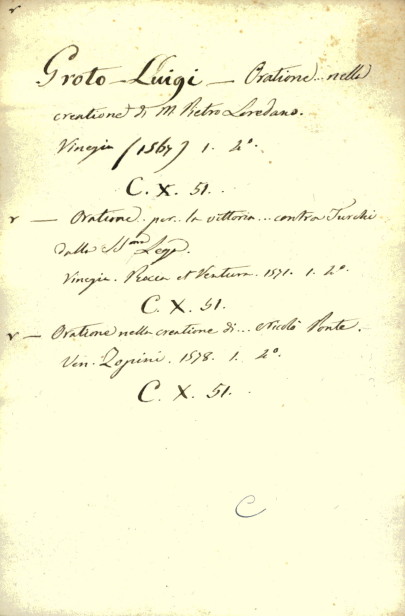 r
Groto Luigi — Oratione... nella
creatione di M Pietro Loredano.
Vinegia (1567) 1. 2°.
C. X. 51.
r — Oratione per la vittoria... contra Turchi
dalla SSma Lega.
Vinegia. Rocca et Ventura. 1571. 1. 2°.
C. X. 51.
r — Oratione nella creatione di... Nicolò Ponte.
Ven. Zopini. 1578. 1. 2°.
C. X. 51.
C